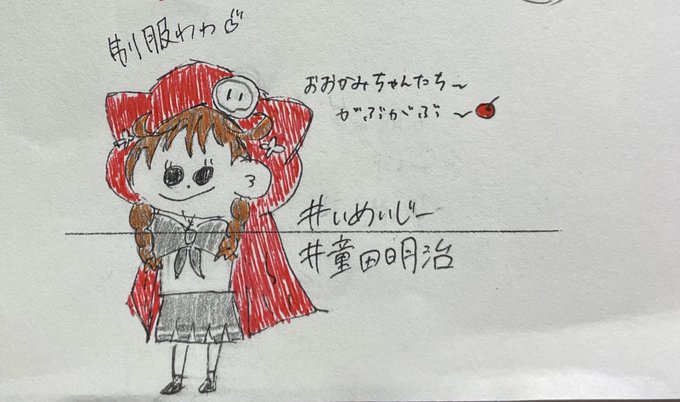 制服わわ
おおかみちゃんたち〜
がぶがぶ〜
#いめいじー
#童田明治